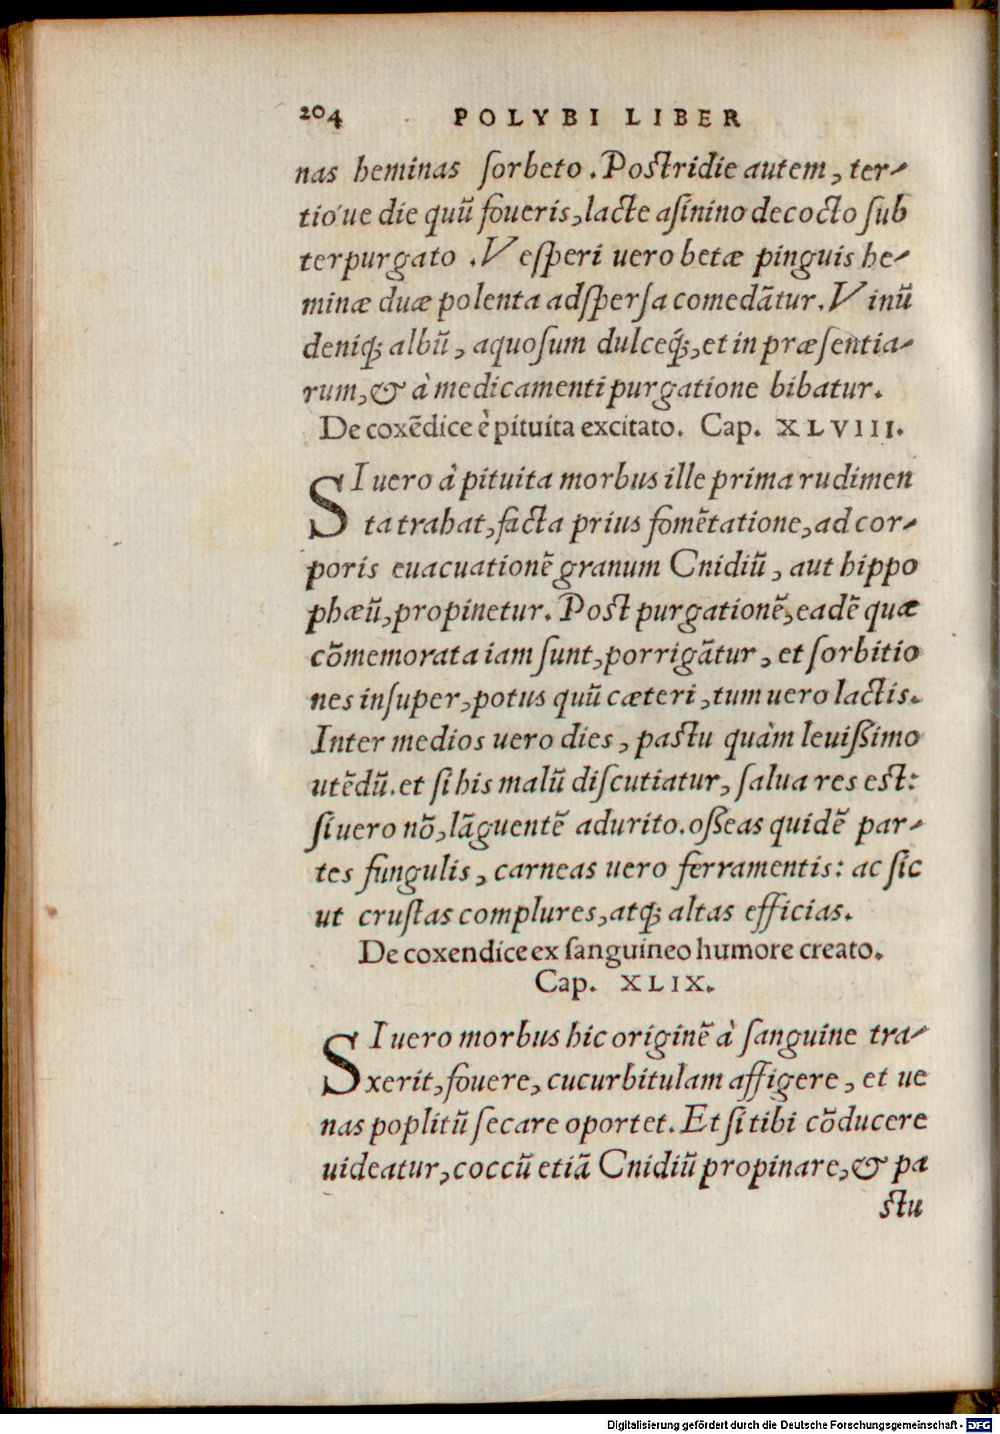 204 POLYBI LIBER
nas heminas ſorbeto. Poſtridie autem, ter-
tio´ue die quū foueris, lacte aſinino decocto ſub
terpurgato. Veſperi uero betæ pinguis he-
minæ duæ polenta adſperſa comedātur. Vinū
deniq; albū, aquoſum dulceq́;, et in præſentia-
rum, & à medicamenti purgatione bibatur.
De coxēdice è pituita excitato. Cap. XLVIII.
SI uero à pituita morbus ille prima rudimen
ta trahat, facta prius fomētatione, ad cor-
poris euacuationē granum Cnidiū, aut hippo
phæū, propinetur. Poſt purgationē, eadē quæ
cōmemorata iam ſunt, porrigātur, et ſorbitio
nes inſuper, potus quū cæteri, tum uero lactis.
Inter medios uero dies, paſtu quàm leuiſsimo
utēdū. et ſi his malū diſcutiatur, ſalua res eſt:
ſi uero nō, lāguentē adurito. oſseas quidē par-
tes fungulis, carneas uero ferramentis: ac ſic
ut cruſtas complures, atq; altas efficias.
De coxendice ex ſanguineo humore creato.
Cap. XLIX.
SI uero morbus hic originē à ſanguine tra-
xerit, fouere, cucurbitulam affigere, et ue
nas poplitū ſecare oportet. Et ſi tibi cōducere
uideatur, coccū etiā Cnidiū propinare, & pa
ſtu
Digitalisierung gefördert durch die Deutsche Forschungsgemeinschaft - DFG